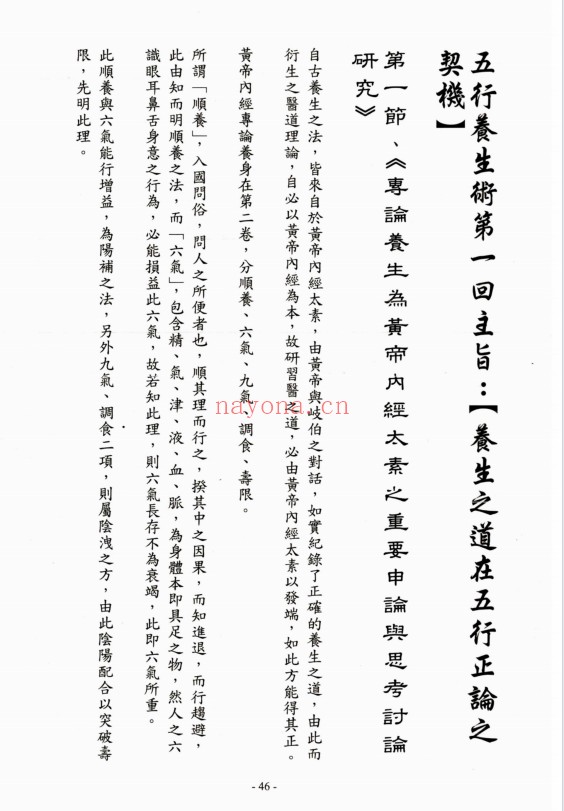 五行養生術第一回主旨：【養生之道在五行正論之
契機】
第一節、《專論養生為黃帝內經太素之重要申論與思考討論
研究》
自古養生之法，皆來自於黃帝內經太素，由黃帝與岐伯之對話，如實紀錄了正確的養生之道，由此而
衍生之醫道理論，自必以黃帝內經為本，故研習醫之道，必由黃帝內經太素以發端，如此方能得其正。
黃帝內經專論養身在第二卷，分順養、六氣、九氣、調食、壽限。
所謂「順養」，入國問俗，問人之所便者也，順其理而行之，揆其中之因果，而知進退，而行趨避，
此由知而明順養之法，而「六氣」，包含精、氣、津、液、血、脈，為身體本即具足之物，然人之六
識眼耳鼻舌身意之行為，必能損益此六氣，故若知此理，則六氣長存不為衰竭，此即六氣所重。
此順養與六氣能行增益，為陽補之法，另外九氣、調食二項，則屬陰洩之方，由此陰陽配合以突破壽
限，先明此理。
nayona.cn
- 46 -